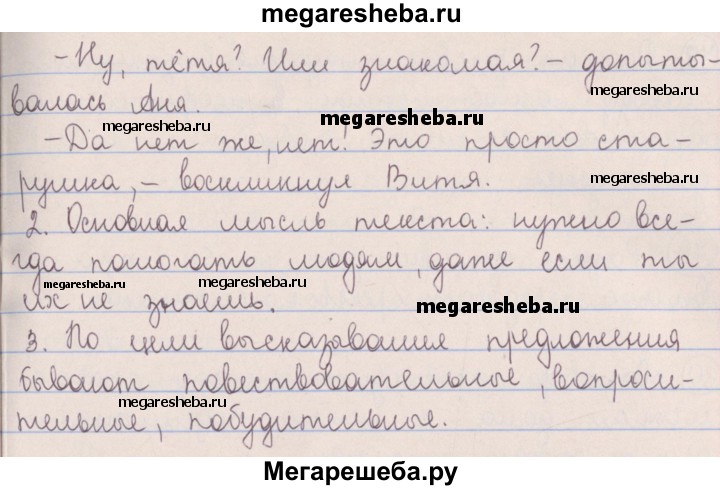 megaresheba.ru
-Ну, тётя? Или знакомая? - допыты-
валась Аня.
megaresheba.ru
megaresheba.ru
-Да нет же, нет! Это просто ста-
рушка, - воскликнул Витя.
megaresheba.ru
2. Основная мысль текста: нужно все-
гда помогать людям, даже если ты
их не знаешь.
megaresheba.ru
megaresheba.ru
megaresheba.ru
3. По цели высказывания предложения
бывают повествовательные, вопроси-
тельные, побудительные.
megaresheba.ru
megaresheba.ru
Мегарешеба.ру